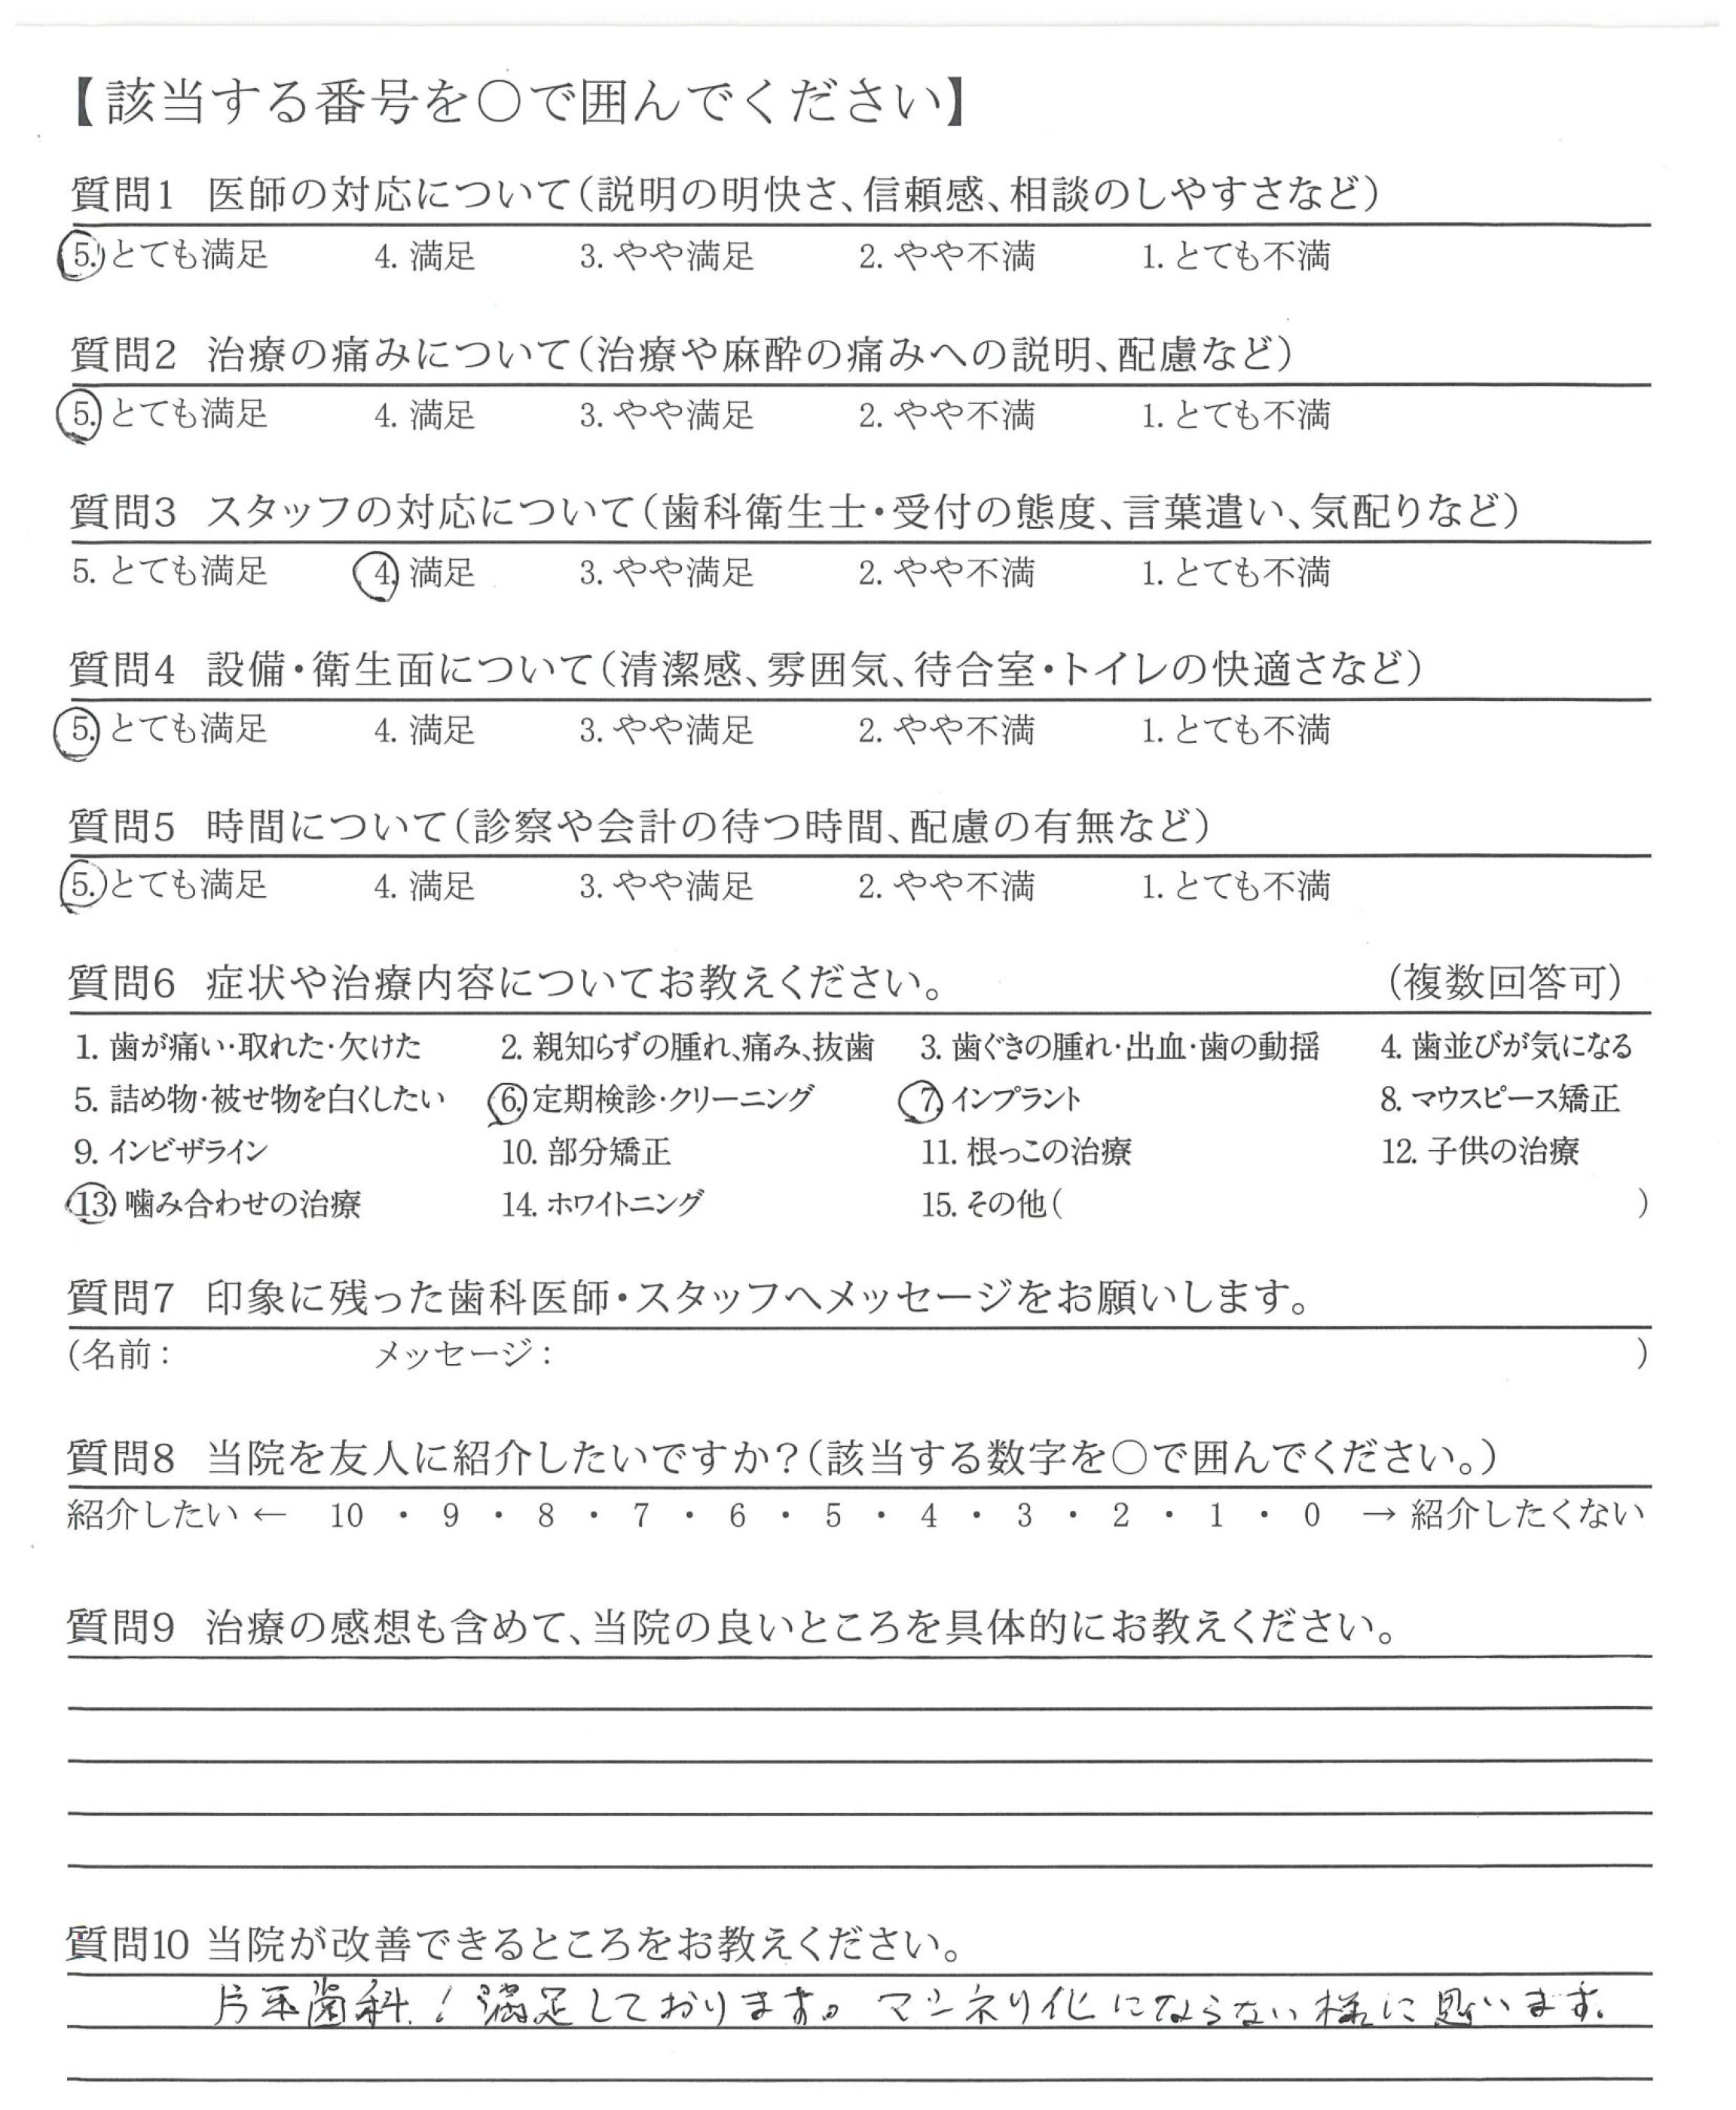 【該当する番号を○で囲んでください】
質問1 医師の対応について(説明の明快さ、信頼感、相談のしやすさなど)
5. とても満足 4. 満足 3. やや満足 2. やや不満 1. とても不満
質問2 治療の痛みについて(治療や麻酔の痛みへの説明、配慮など)
5. とても満足 4. 満足 3. やや満足 2. やや不満 1. とても不満
質問3 スタッフの対応について(歯科衛生士・受付の態度、言葉遣い、気配りなど)
5. とても満足 4. 満足 3. やや満足 2. やや不満 1. とても不満
質問4 設備・衛生面について(清潔感、雰囲気、待合室・トイレの快適さなど)
5. とても満足 4. 満足 3. やや満足 2. やや不満 1. とても不満
質問5 時間について(診察や会計の待つ時間、配慮の有無など)
5. とても満足 4. 満足 3. やや満足 2. やや不満 1. とても不満
質問6 症状や治療内容についてお教えください。 (複数回答可)
1. 歯が痛い・取れた・欠けた 2. 親知らずの腫れ、痛み、抜歯 3. 歯ぐきの腫れ・出血・歯の動揺 4. 歯並びが気になる
5. 詰め物・被せ物を白くしたい 6. 定期検診・クリーニング 7. インプラント 8. マウスピース矯正
9. インビザライン 10. 部分矯正 11. 根っこの治療 12. 子供の治療
13. 噛み合わせの治療 14. ホワイトニング 15. その他( )
質問7 印象に残った歯科医師・スタッフへメッセージをお願いします。
(名前: メッセージ: )
質問8 当院を友人に紹介したいですか?(該当する数字を○で囲んでください。)
紹介したい ← 10 ・ 9 ・ 8 ・ 7 ・ 6 ・ 5 ・ 4 ・ 3 ・ 2 ・ 1 ・ 0 → 紹介したくない
質問9 治療の感想も含めて、当院の良いところを具体的にお教えください。
質問10 当院が改善できるところをお教えください。
歯科! 満足しております。マンネリ化にならない様に思います。